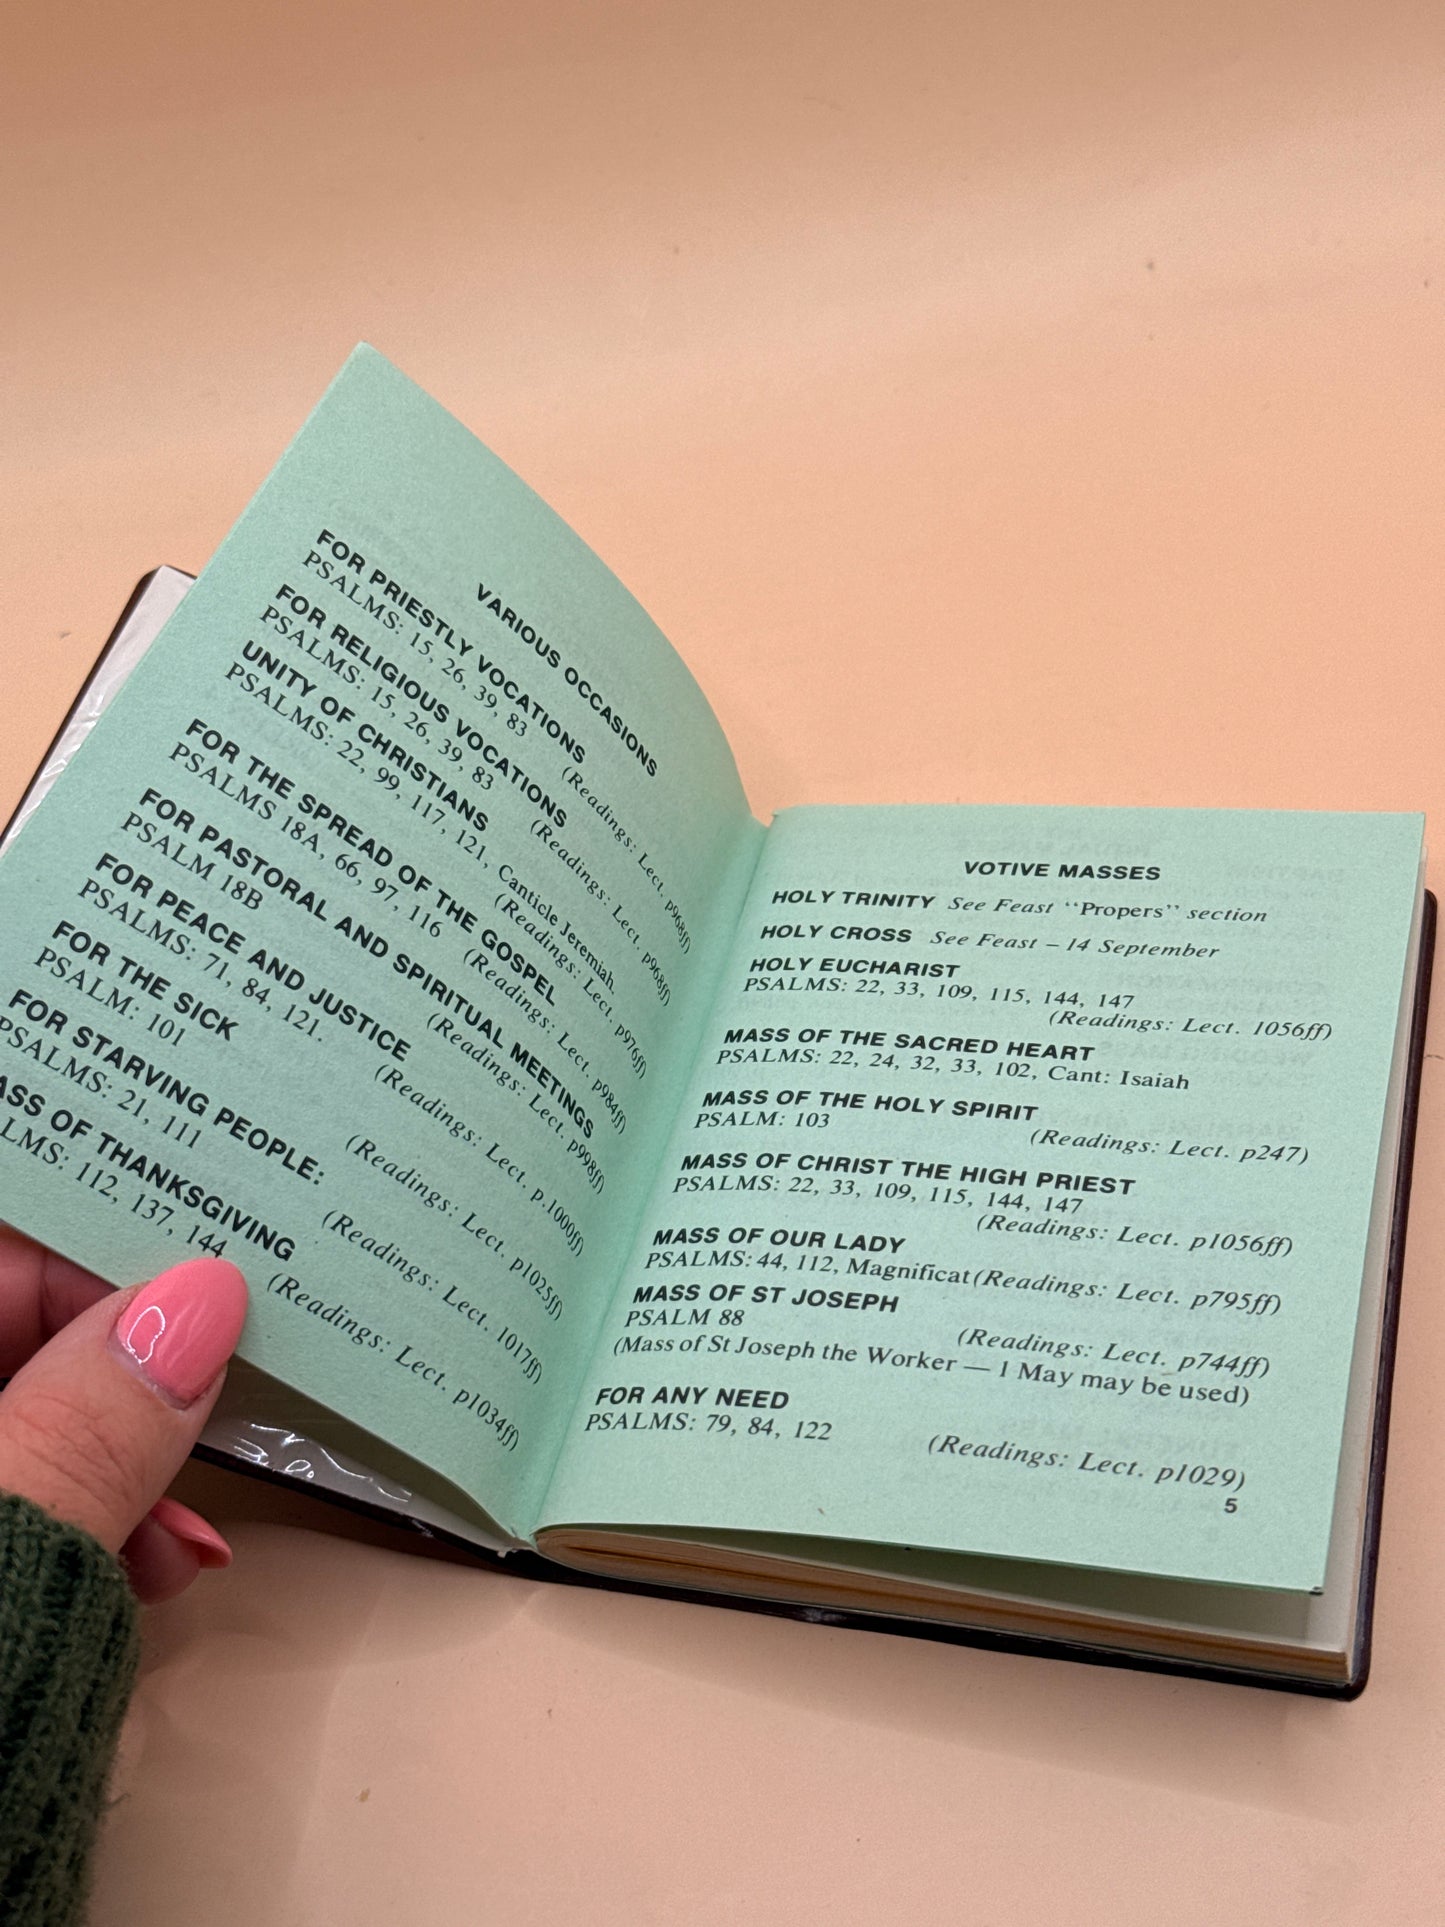 VARIOUS OCCASIONS
FOR PRIESTLY VOCATIONS
PSALMS: 15, 26, 39, 83
(Readings: Lect. p968ff)
FOR RELIGIOUS VOCATIONS
PSALMS: 15, 26, 39, 83
(Readings: Lect. p968ff)
UNITY OF CHRISTIANS
PSALMS: 22, 99, 117, 121, Canticle Jeremiah.
(Readings: Lect. p976ff)
FOR THE SPREAD OF THE GOSPEL
PSALMS 18A, 66, 97, 116
(Readings: Lect. p984ff)
FOR PASTORAL AND SPIRITUAL MEETINGS
PSALM 18B
(Readings: Lect. p998ff)
FOR PEACE AND JUSTICE
PSALMS: 71, 84, 121.
(Readings: Lect. p.1000ff)
FOR THE SICK
PSALM: 101
(Readings: Lect. p1025ff)
FOR STARVING PEOPLE:
PSALMS: 21, 111
(Readings: Lect. 1017ff)
ASS OF THANKSGIVING
LMS: 112, 137, 144
(Readings: Lect. p1034ff)
VOTIVE MASSES
HOLY TRINITY See Feast "Propers" section
HOLY CROSS See Feast – 14 September
HOLY EUCHARIST
PSALMS: 22, 33, 109, 115, 144, 147
(Readings: Lect. 1056ff)
MASS OF THE SACRED HEART
PSALMS: 22, 24, 32, 33, 102, Cant: Isaiah
MASS OF THE HOLY SPIRIT
PSALM: 103
(Readings: Lect. p247)
MASS OF CHRIST THE HIGH PRIEST
PSALMS: 22, 33, 109, 115, 144, 147
(Readings: Lect. p1056ff)
MASS OF OUR LADY
PSALMS: 44, 112, Magnificat (Readings: Lect. p795ff)
MASS OF ST JOSEPH
PSALM 88
(Readings: Lect. p744ff)
(Mass of St Joseph the Worker — 1 May may be used)
FOR ANY NEED
PSALMS: 79, 84, 122
(Readings: Lect. p1029)
5